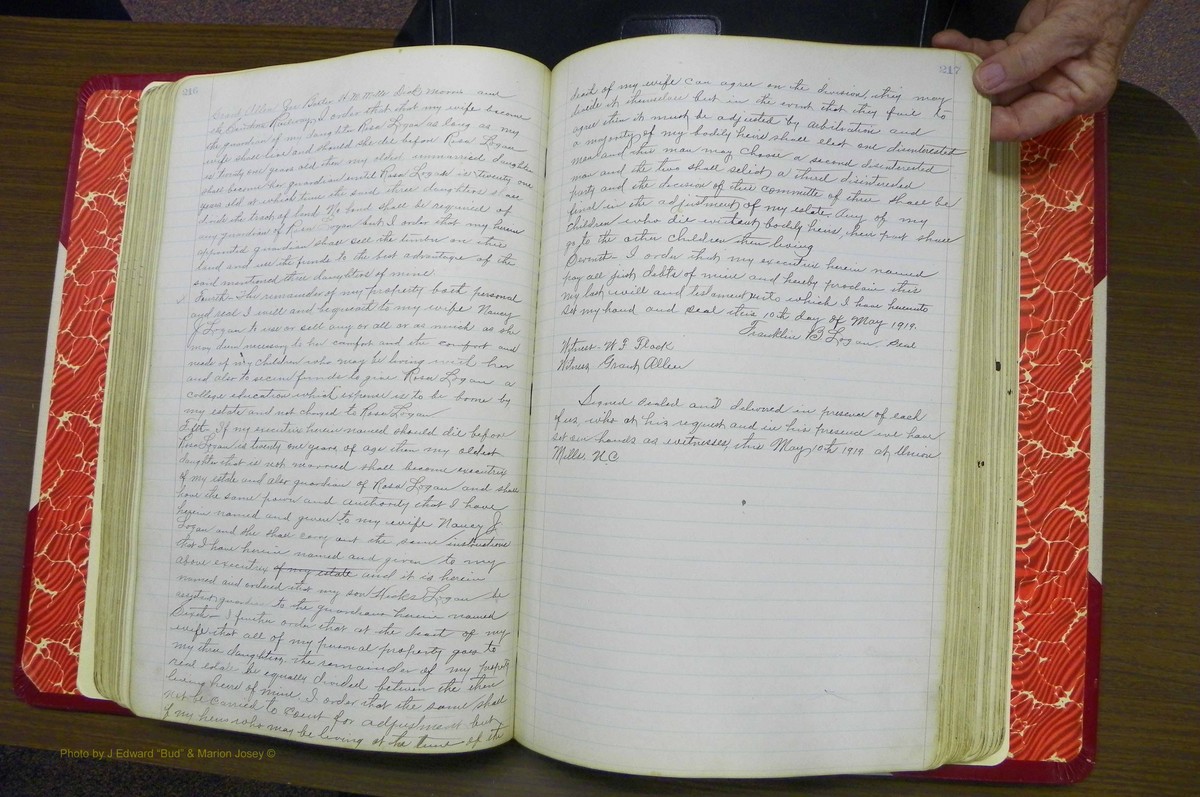 216
Grant Allen Joe Bailey H M Mills Dock Moore and
the Southern Railway, I order that my wife become
the guardian of my daughter Rosa Logan as long as my
wife shall live and should she die before Rosa Logan
is twenty one years old then my oldest unmarried daughter
shall become her guardian until Rosa Logan is twenty one
years old at which time the said three daughters is to
divide the track of land. No bond shall be required of
any guardian of Rosa Logan but I order that my herein
appointed guardian shall sell the timber on this
land and use the funds to the best advantage of the
said mentioned three daughters of mine.
Fourth- The remainder of my property both personal
and real I will and bequeath to my wife Nancy
J Logan to use or sell any or all or as much as she
may deem necessary to her comfort and the comfort and
needs of my children who may be living with her
and also to secure funds to give Rosa Logan a
college education which expense is to be borne by
my estate and not charged to Rosa Logan
Fifth- If my executrix herein named should die before
Rosa Logan is twenty one years of age then my oldest
daughter that is not married shall become executrix
of my estate and also guardian of Rosa Logan and shall
have the same power and authority that I have
herein named and given to my wife Nancy J.
Logan and she shall carry out the same instructions
that I have herein named and given to my
above executrix of my estate and it is herein
named and ordered that my son Hicks Logan be
guardian to the guardians herein named
Sixth- I further order that at the death of my
wife that all of my personal property goes to
my three daughters, the remainder of my property
real estate be equally divided between the then
living heirs of mine. I order that the same shall
not be carried to Court for adjustment but
if my heirs who may be living at the time of the
217
death of my wife can agree on the division they may
divide it themselves but in the event that they fail to
agree then it must be adjusted by arbitration and
a majority of my bodily heirs shall elect one disinterested
man and this man may choose a second disinterested
man and the two shall select a third disinterested
party and the decision of this committe of three shall be
final in the adjustment of my estate. Any of my
children who die without bodily heirs, their part shall
go to the other children then living
Seventh- I order that my executrix herein named
pay all just debts of mine and hereby proclaim this
my last will and testament unto which I have hereunto
set my hand and seal this 10th day of May 1919.
Franklin B Logan. Seal
Witness- W F Flack
Witness Grant Allen
Signed sealed and delivered in presence of each
of us, who at his request and in his presence we have
set our hands as witnesses, this May 10th 1919 at Union
Mills, N.C.
Photo by J Edward "Bud" & Marion Josey ©